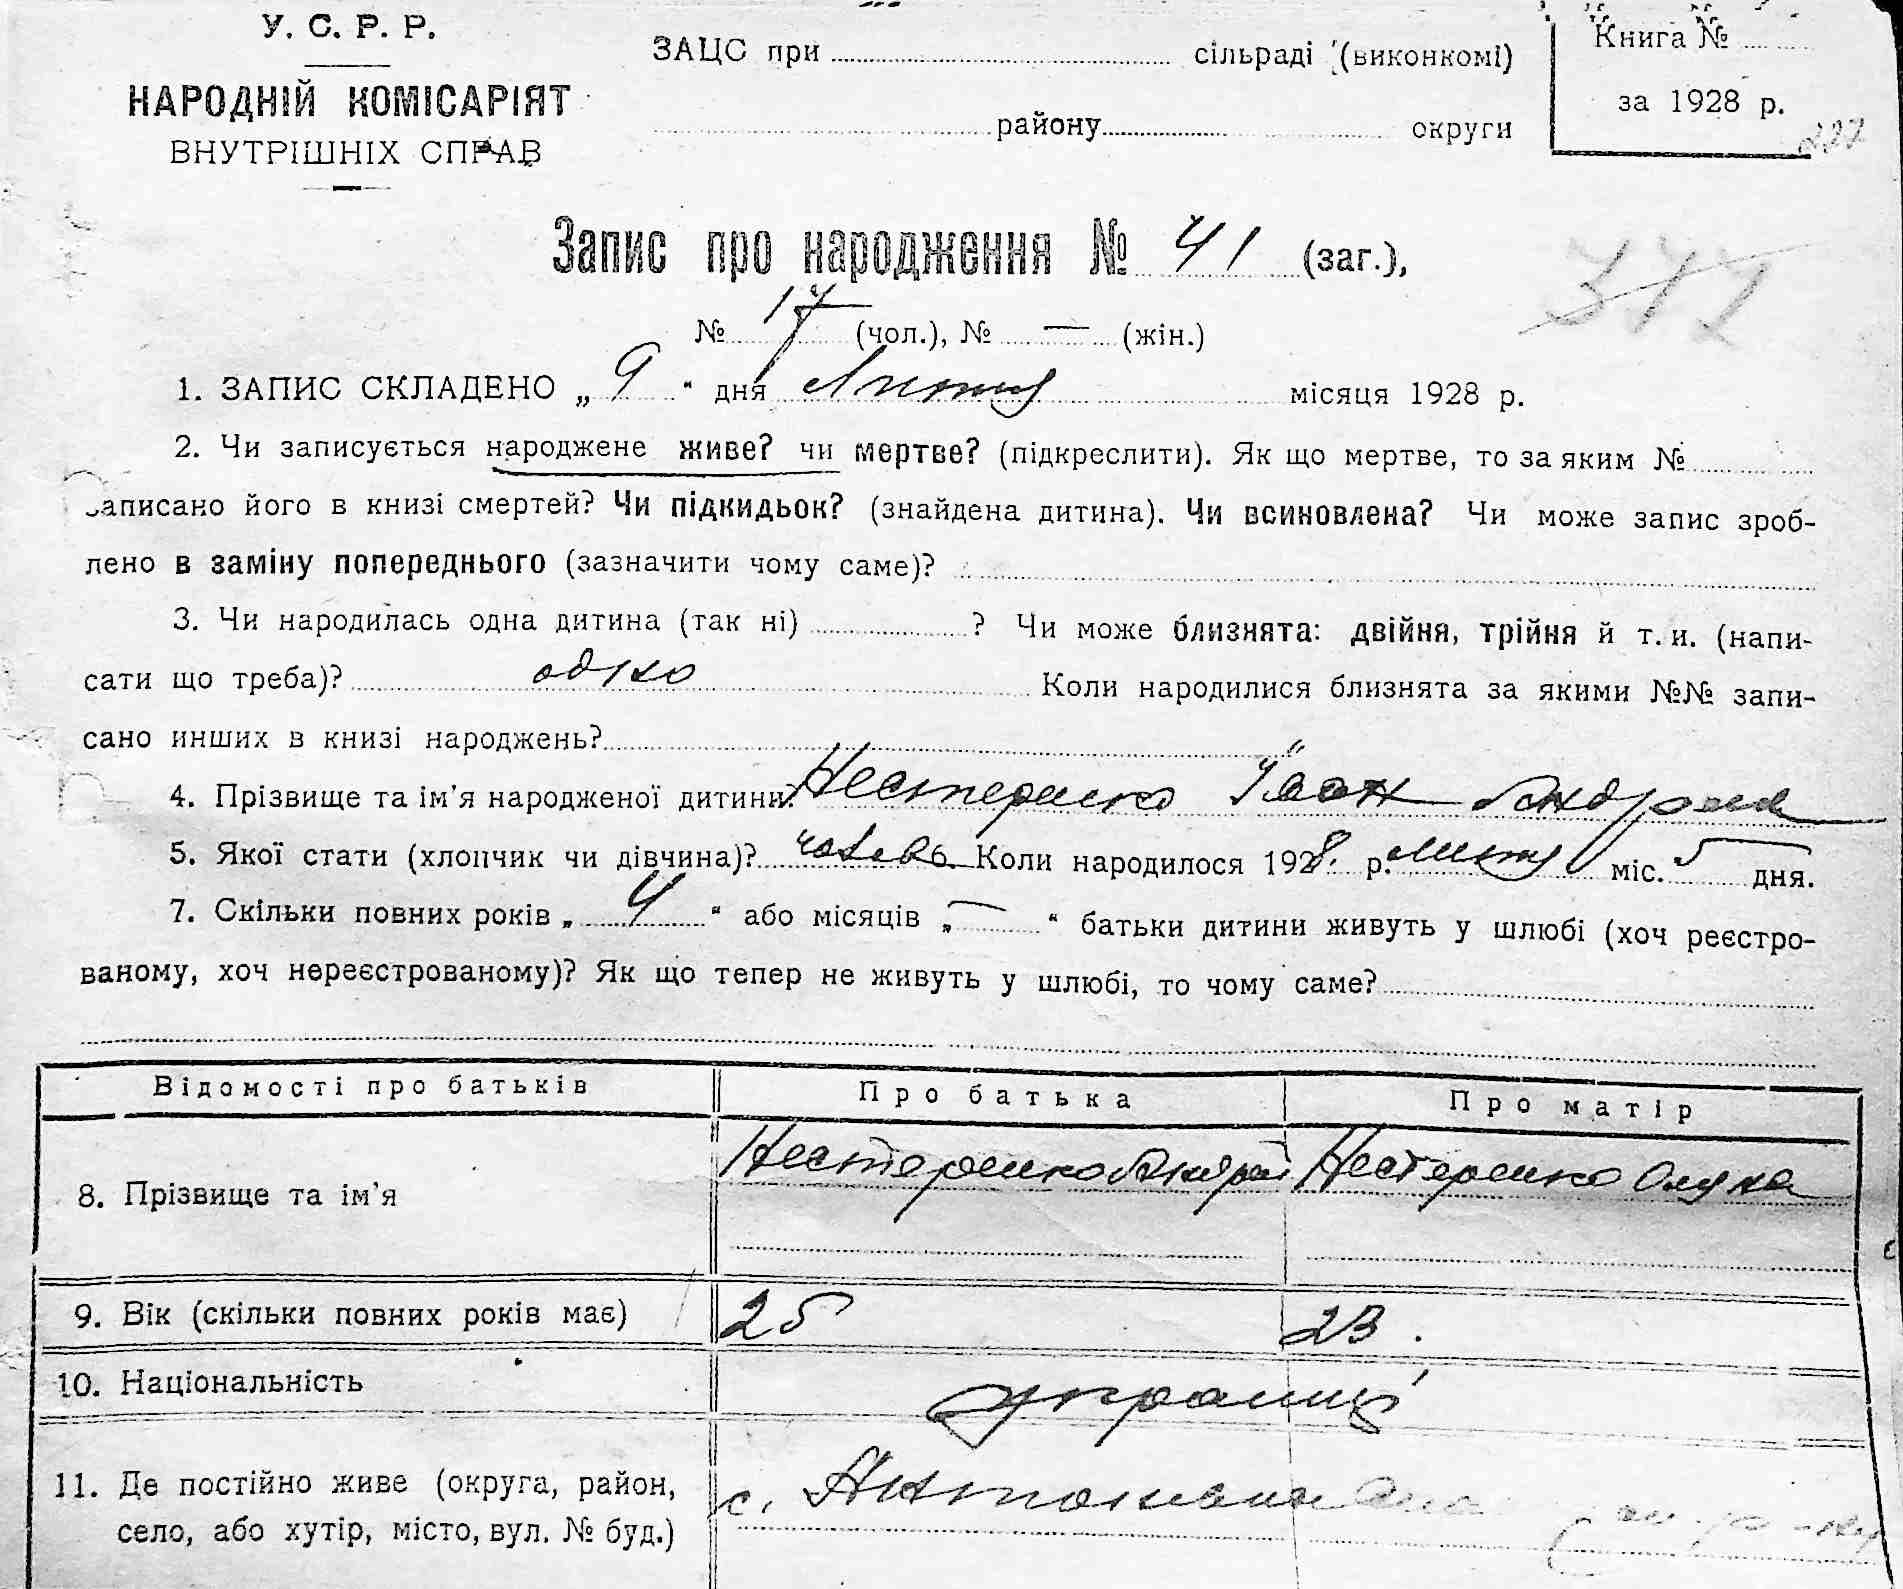 У. С. Р. Р.
НАРОДНІЙ КОМІСАРІЯТ
ВНУТРІШНІХ СПРАВ
ЗАЦС при сільраді (виконкомі)
району округи
Книга №
за 1928 р.
Запис про народження № 41 (заг.),
№ 17 (чол.), № — (жін.)
1. ЗАПИС СКЛАДЕНО „ 9 “ дня Лютня місяця 1928 р.
2. Чи записується народжене живе? чи мертве? (підкреслити). Як що мертве, то за яким №
записано його в книзі смертей? Чи підкидьок? (знайдена дитина). Чи всиновлена? Чи може запис зроб-
лено в заміну попереднього (зазначити чому саме)?
3. Чи народилась одна дитина (так ні) ? Чи може близнята: двійня, трійня й т. и. (напи-
сати що треба)? одно Коли народилися близнята за якими №№ запи-
сано инших в книзі народжень?
4. Прізвище та ім'я народженої дитини. Нестеренко Іван
5. Якої стати (хлопчик чи дівчина)? Коли народилося 1928. р. лютня міс. 5 дня.
7. Скільки повних років „ 4 “ або місяців „ — “ батьки дитини живуть у шлюбі (хоч реєстро-
ваному, хоч нереєстрованому)? Як що тепер не живуть у шлюбі, то чому саме?
Відомості про батьків Про батька Про матір
8. Прізвище та ім'я Нестеренко Андрій Нестеренко
9. Вік (скільки повних років має) 25 23.
10. Національність українці
11. Де постійно живе (округа, район, с. Антонівка
село, або хутір, місто, вул. № буд.)